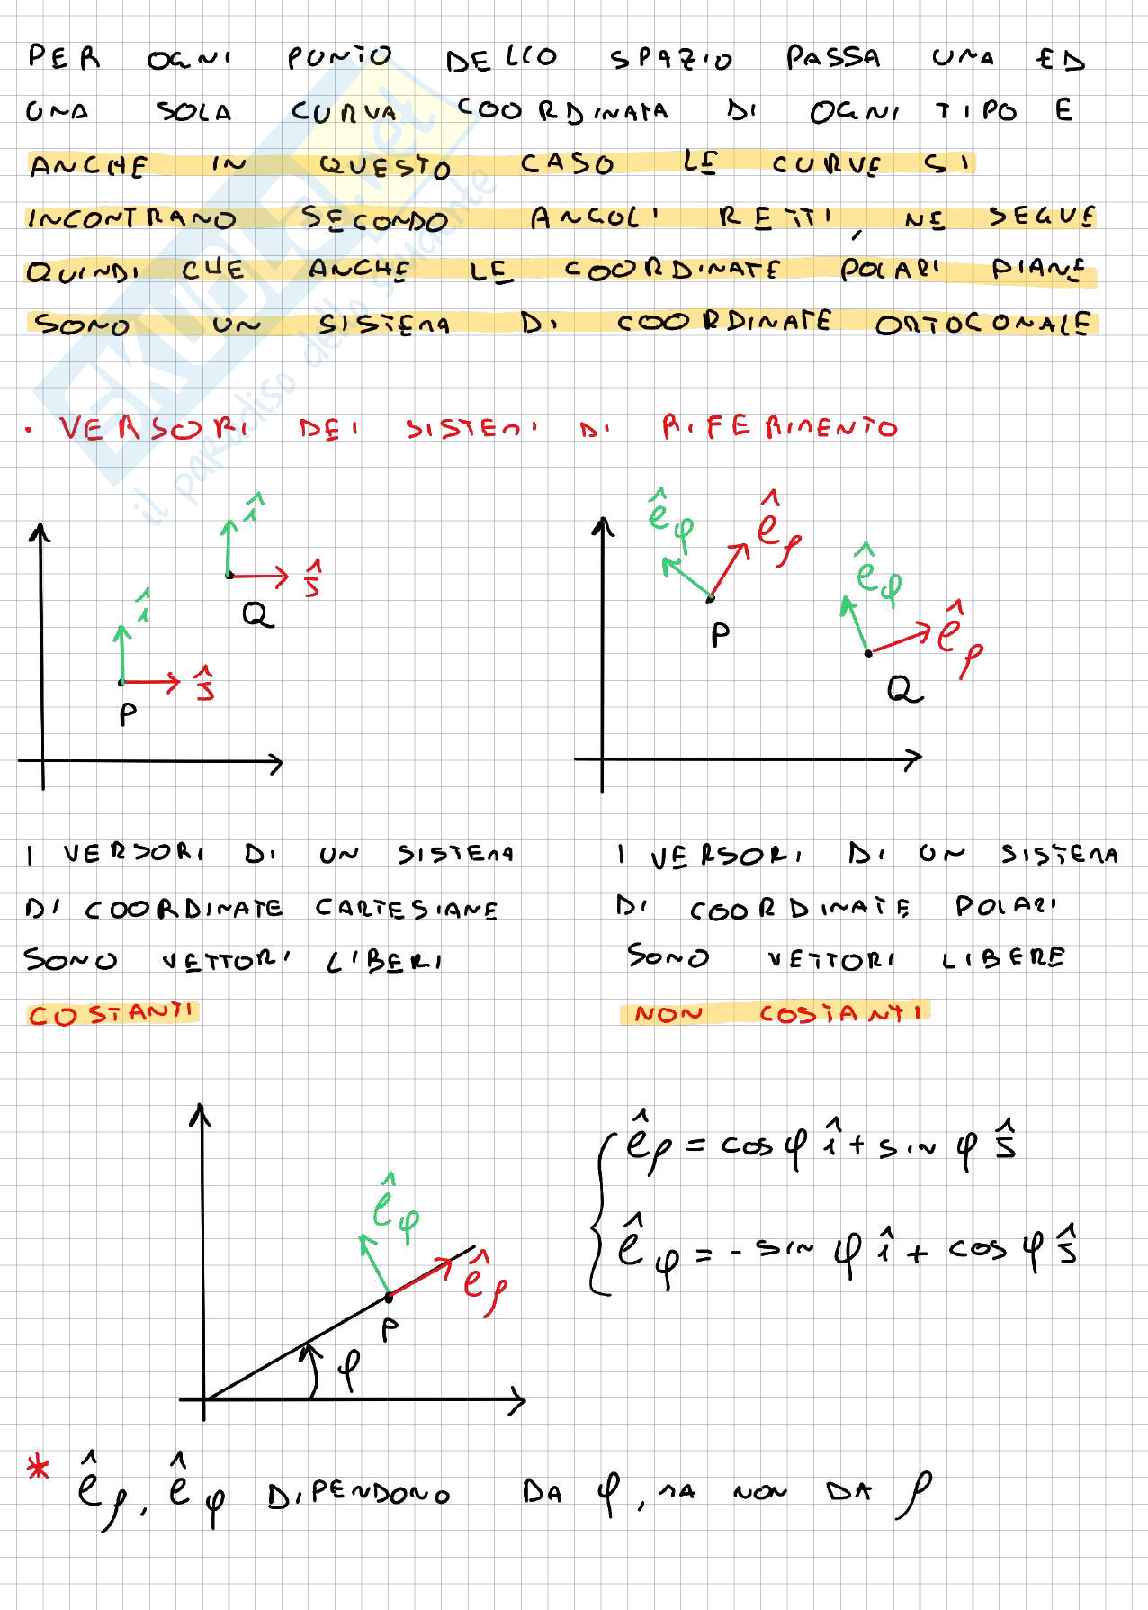 PER OGNI PUNTO DELLO SPAZIO PASSA UNA ED
UNA SOLA CURVA COORDINATA DI OGNI TIPO E
ANCHE IN QUESTO CASO LE CURVE SI
INCONTRANO SECONDO ANGOLI RETTI, NE SEGUE
QUINDI CHE ANCHE LE COORDINATE POLARI PIANE
SONO UN SISTEMA DI COORDINATE ORTOGONALE
SKUOLA.net
il paradiso dello studente
• VERSORI DEI SISTEMI DI RIFERIMENTO
î
ĵ
Q
î
ĵ
P
ê_φ ê_ρ
P
ê_φ
ê_ρ
Q
I VERSORI DI UN SISTEMA
DI COORDINATE CARTESIANE
SONO VETTORI LIBERI
COSTANTI
I VERSORI DI UN SISTEMA
DI COORDINATE POLARI
SONO VETTORI LIBERE
NON COSTANTI
ê_φ
ê_ρ
P
φ
ê_ρ = cos φ î + sin φ ĵ
ê_φ = - sin φ î + cos φ ĵ
* ê_ρ, ê_φ DIPENDONO DA φ, MA NON DA ρ